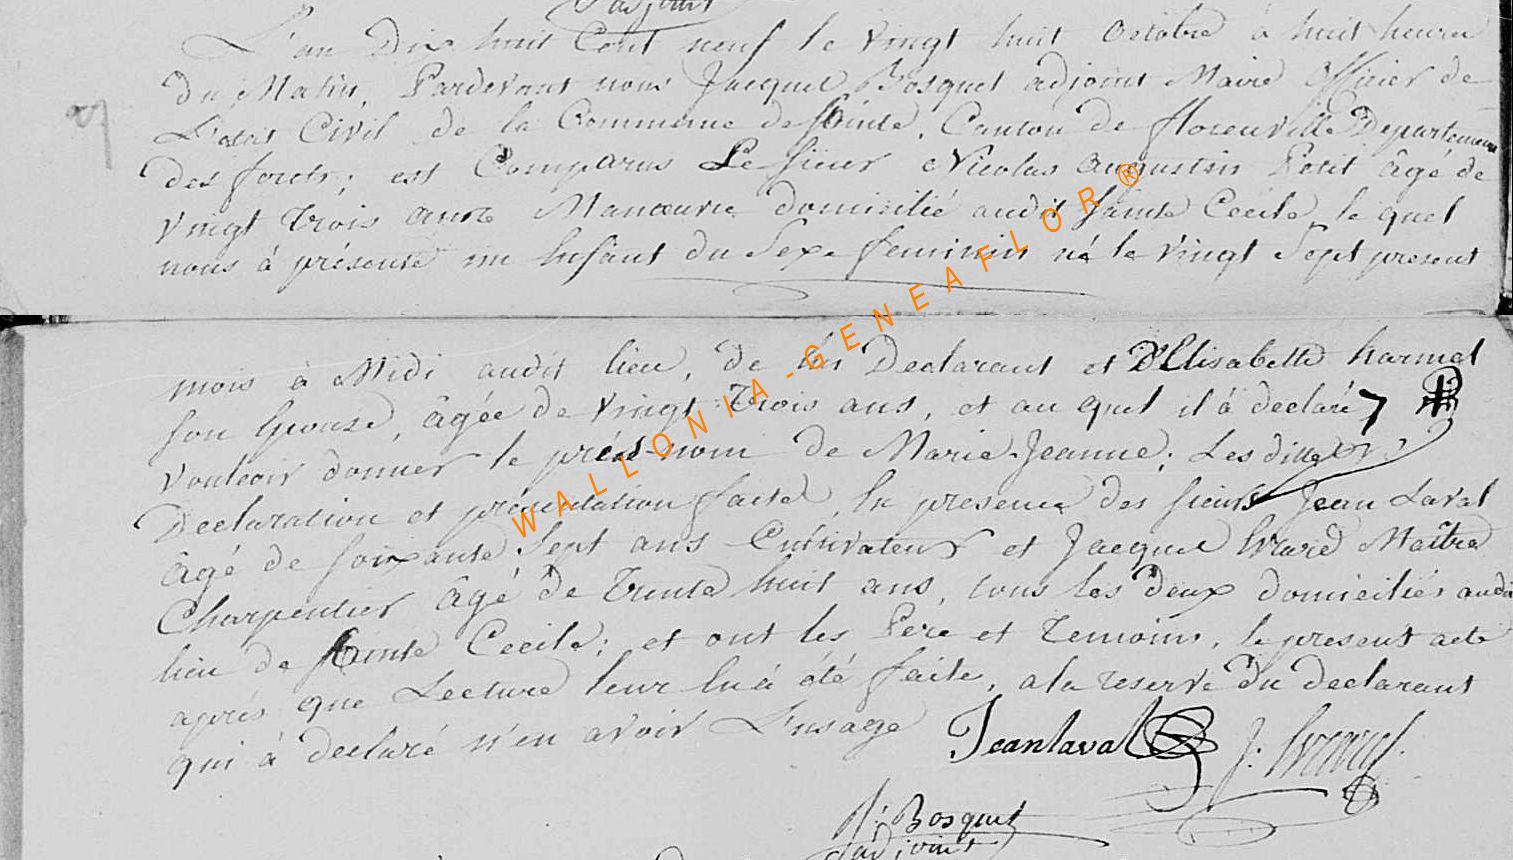 L'adjoint
L'an Dix huit Cent neuf le vingt huit octobre à huit heures
du Matin, Pardevant nous Jacques Bosquet adjoint Maire officier de
L'etat Civil de la Commune de Sainte, Canton de florenville Departement
des forets; est Comparus Le sieur Nicolas Augustin Petit âgé de
vingt Trois ans Manœuvre domicilié audit Sainte Cécile, le quel
nous à présenté un Enfant du Sexe feminin né le vingt Sept present
mois à Midi audit lieu, de lui Declarant et D'Elisabette harmel
son Epouse, âgée de vingt Trois ans, et au quel il à declaré
vouloir donner le pré-nom de Marie-Jeanne; Les dittes
Declaration et présentation faite, En presence des sieurs Jean Laval
âgé de soixante Sept ans Cultivateur et Jacques Evrard Maître
Charpentier âgé de Trente huit ans, tous les deux domiciliés audit
lieu de Sainte Cecile; et ont les Pere et Temoins, le present acte
après que Lecture leur en à été faite, a la reserve du declarant
qui à declaré n'en avoir L'usage
Jean laval J: Evrard
J: Bosquet
adjoint
WALLONIA-GENEAFLOR®